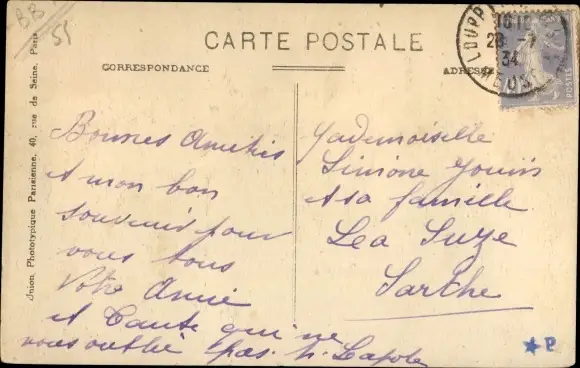 BB
51
CARTE POSTALE
CORRESPONDANCE
ADRESSE
LOUPP
28 -
34
MEUSE
POSTES
Union Phototypique Parisienne, 40, rue de Seine, Paris
Bonnes Amitiés
et mon bon
souvenir pour
vous tous
Votre Amie
et Tante qui ne
vous oublie pas.
Mademoiselle
Simone
et sa famille
Lea Suze
Sarthe
★ P